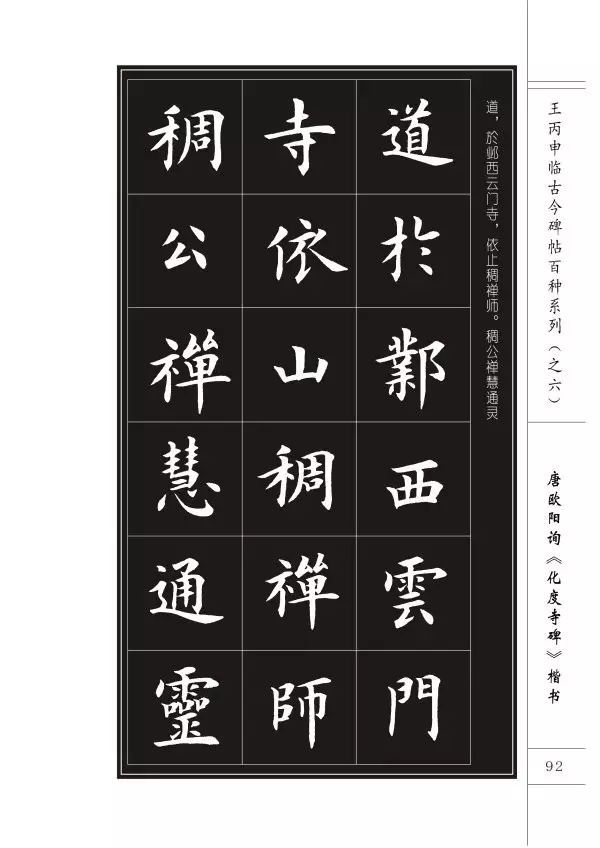 王丙申临古今碑帖百种系列（之六）
唐欧阳询《化度寺碑》楷书
92
道，於邺西云门寺，依止稠禅师。稠公禅慧通灵
道於鄴西雲門
寺依山稠禪師
稠公禪慧通靈